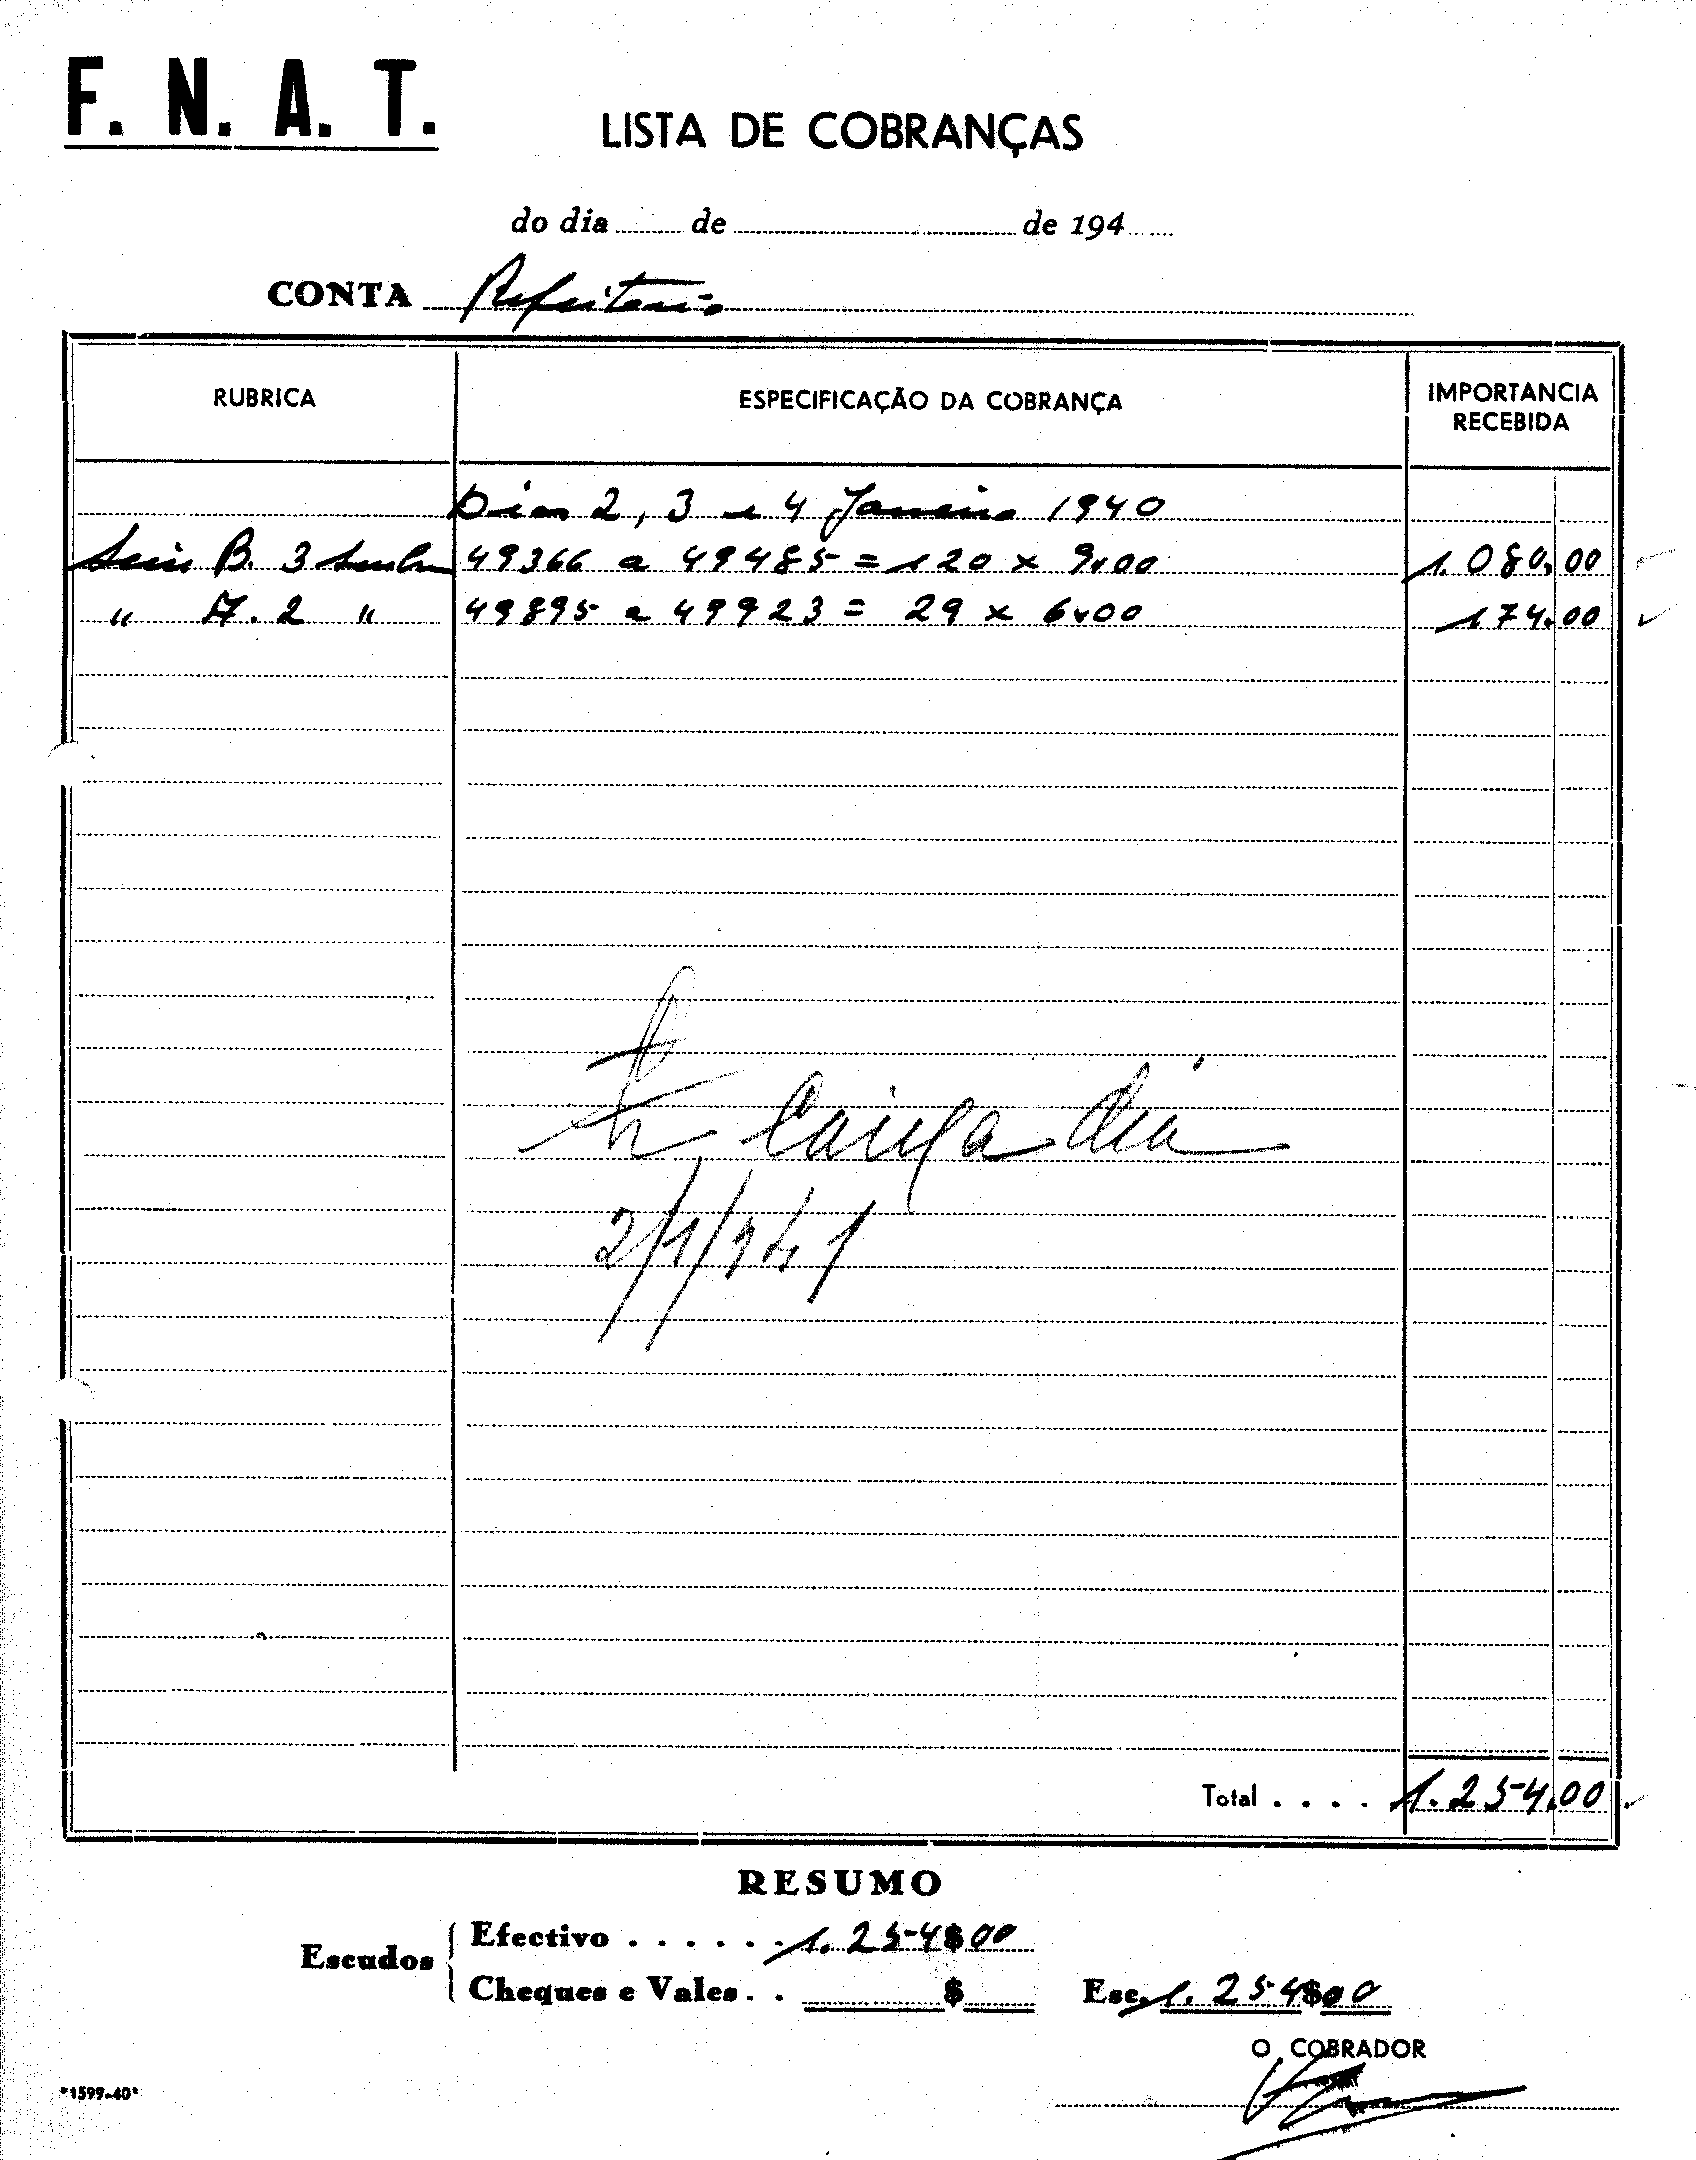 F. N. A. T.
LISTA DE COBRANÇAS
do dia ...... de ...................... de 194......
CONTA Refeitorio
RUBRICA ESPECIFICAÇÃO DA COBRANÇA IMPORTANCIA RECEBIDA
Dias 2, 3 e 4 Janeiro 1940
B. 3 49366 a 49485 = 120 x 9,00 1.080,00
" A. 2 " 49895 a 49923 = 29 x 6,00 174,00
Caixa dia
2/1/941
Total .... 1.254,00
RESUMO
Escudos
Efectivo ...... 1.254$00
Cheques e Vales .. $
Esc. 1.254$00
O COBRADOR
"1599-40"